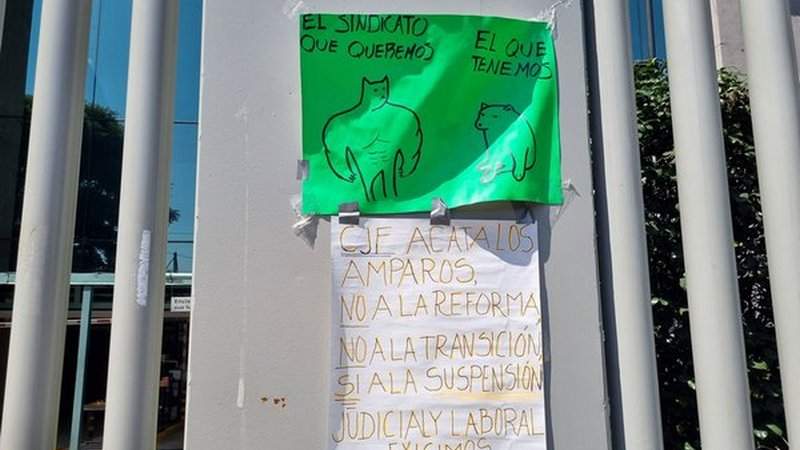 EL SINDICATO
QUE QUEREMOS
EL QUE
TENEMOS
CJF ACATA LOS
AMPAROS,
NO A LA REFORMA,
NO A LA TRANSICIÓN,
SI A LA SUSPENSIÓN
JUDICIAL Y LABORAL
EXIGIMOS